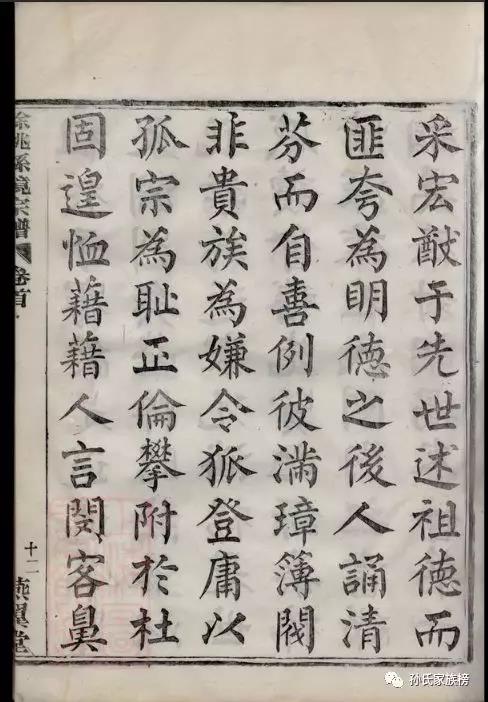 采宏猷于先世述祖德而
匪夸為明德之後人誦清
芬而自喜例彼滿璋簿閥
非貴族為嫌令狐登庸以
孤宗為耻正倫攀附於杜
固遑恤藉藉人言閔客鼻
餘姚孫境宗譜
卷首
十二
燕翼堂
孙氏家族榜